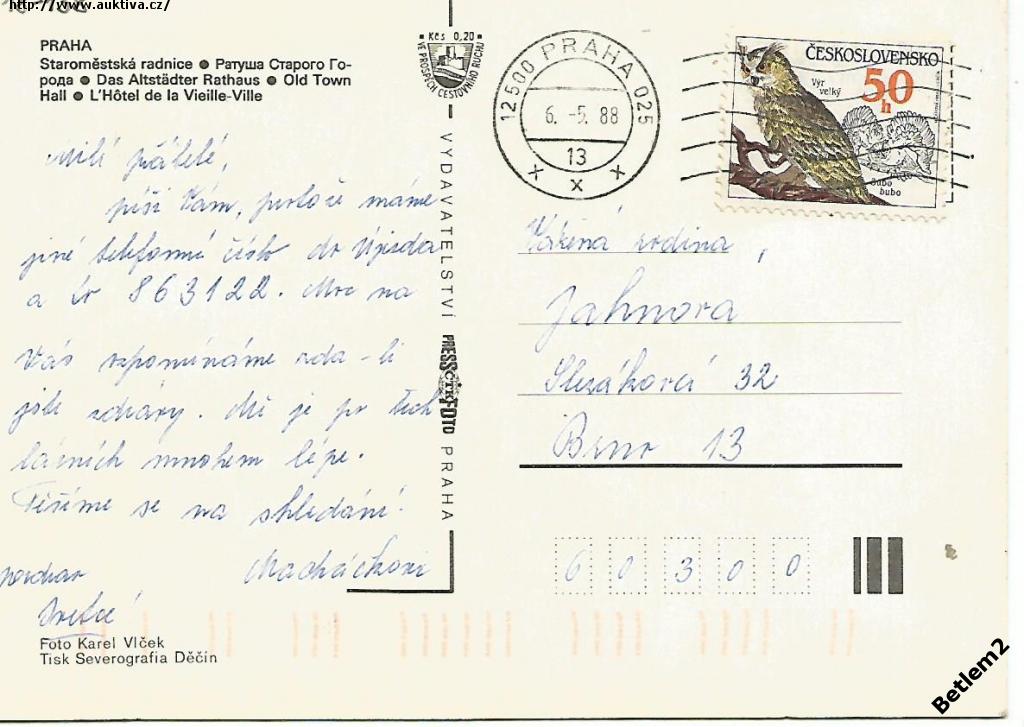 http://www.auktiva.cz/
PRAHA
Staroměstská radnice ● Ратуша Старого Го-
рода ● Das Altstädter Rathaus ● Old Town
Hall ● L'Hôtel de la Vieille-Ville
Milí přátelé,
píši Vám, protože máme
jiné telefonní číslo do
a to 863122. na
Vás vzpomínáme zda-li
jste zdrávy. Mě je po těch
lázních mnohem lépe.
Těšíme se na shledání!
Foto Karel Vlček
Tisk Severografia Děčín
Kčs 0,20
VE PROSPĚCH CESTOVNÍHO RUCHU
VYDAVATELSTVÍ PRESSFOTO PRAHA
ČTK
12500 PRAHA 025
6. -5. 88
13
x x x
ČESKOSLOVENSKO
50
h
Výr
velký
bubo
bubo
Vážená rodina,
Jahnova
Slezákova 32
Brno 13
60300
Betlem2